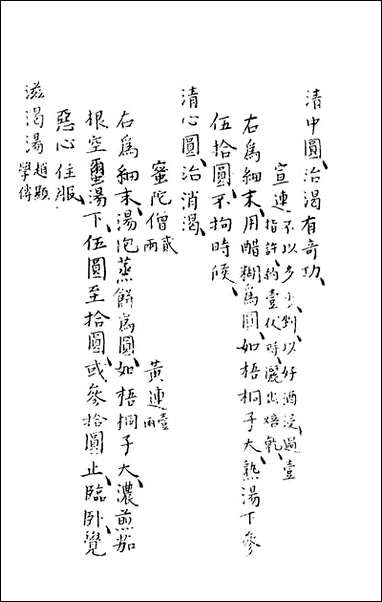 清中圓、治渴有奇功、
宣連不以多少、剉、以好酒浸、過壹
指許、約壹伏時、灑出焙乾、
右為細末、用醋糊為圓、如梧桐子大、熟湯下參
伍拾圓、不拘時候、
清心圓、治消渴、
蜜陀僧貳兩　黃連壹兩
右為細末、湯泡蒸餅為圓、如梧桐子大、濃煎茄
根空蠒湯下、伍圓至拾圓、或參拾圓止、臨卧、覺
惡心住服、
滋渴湯趙顯學傳